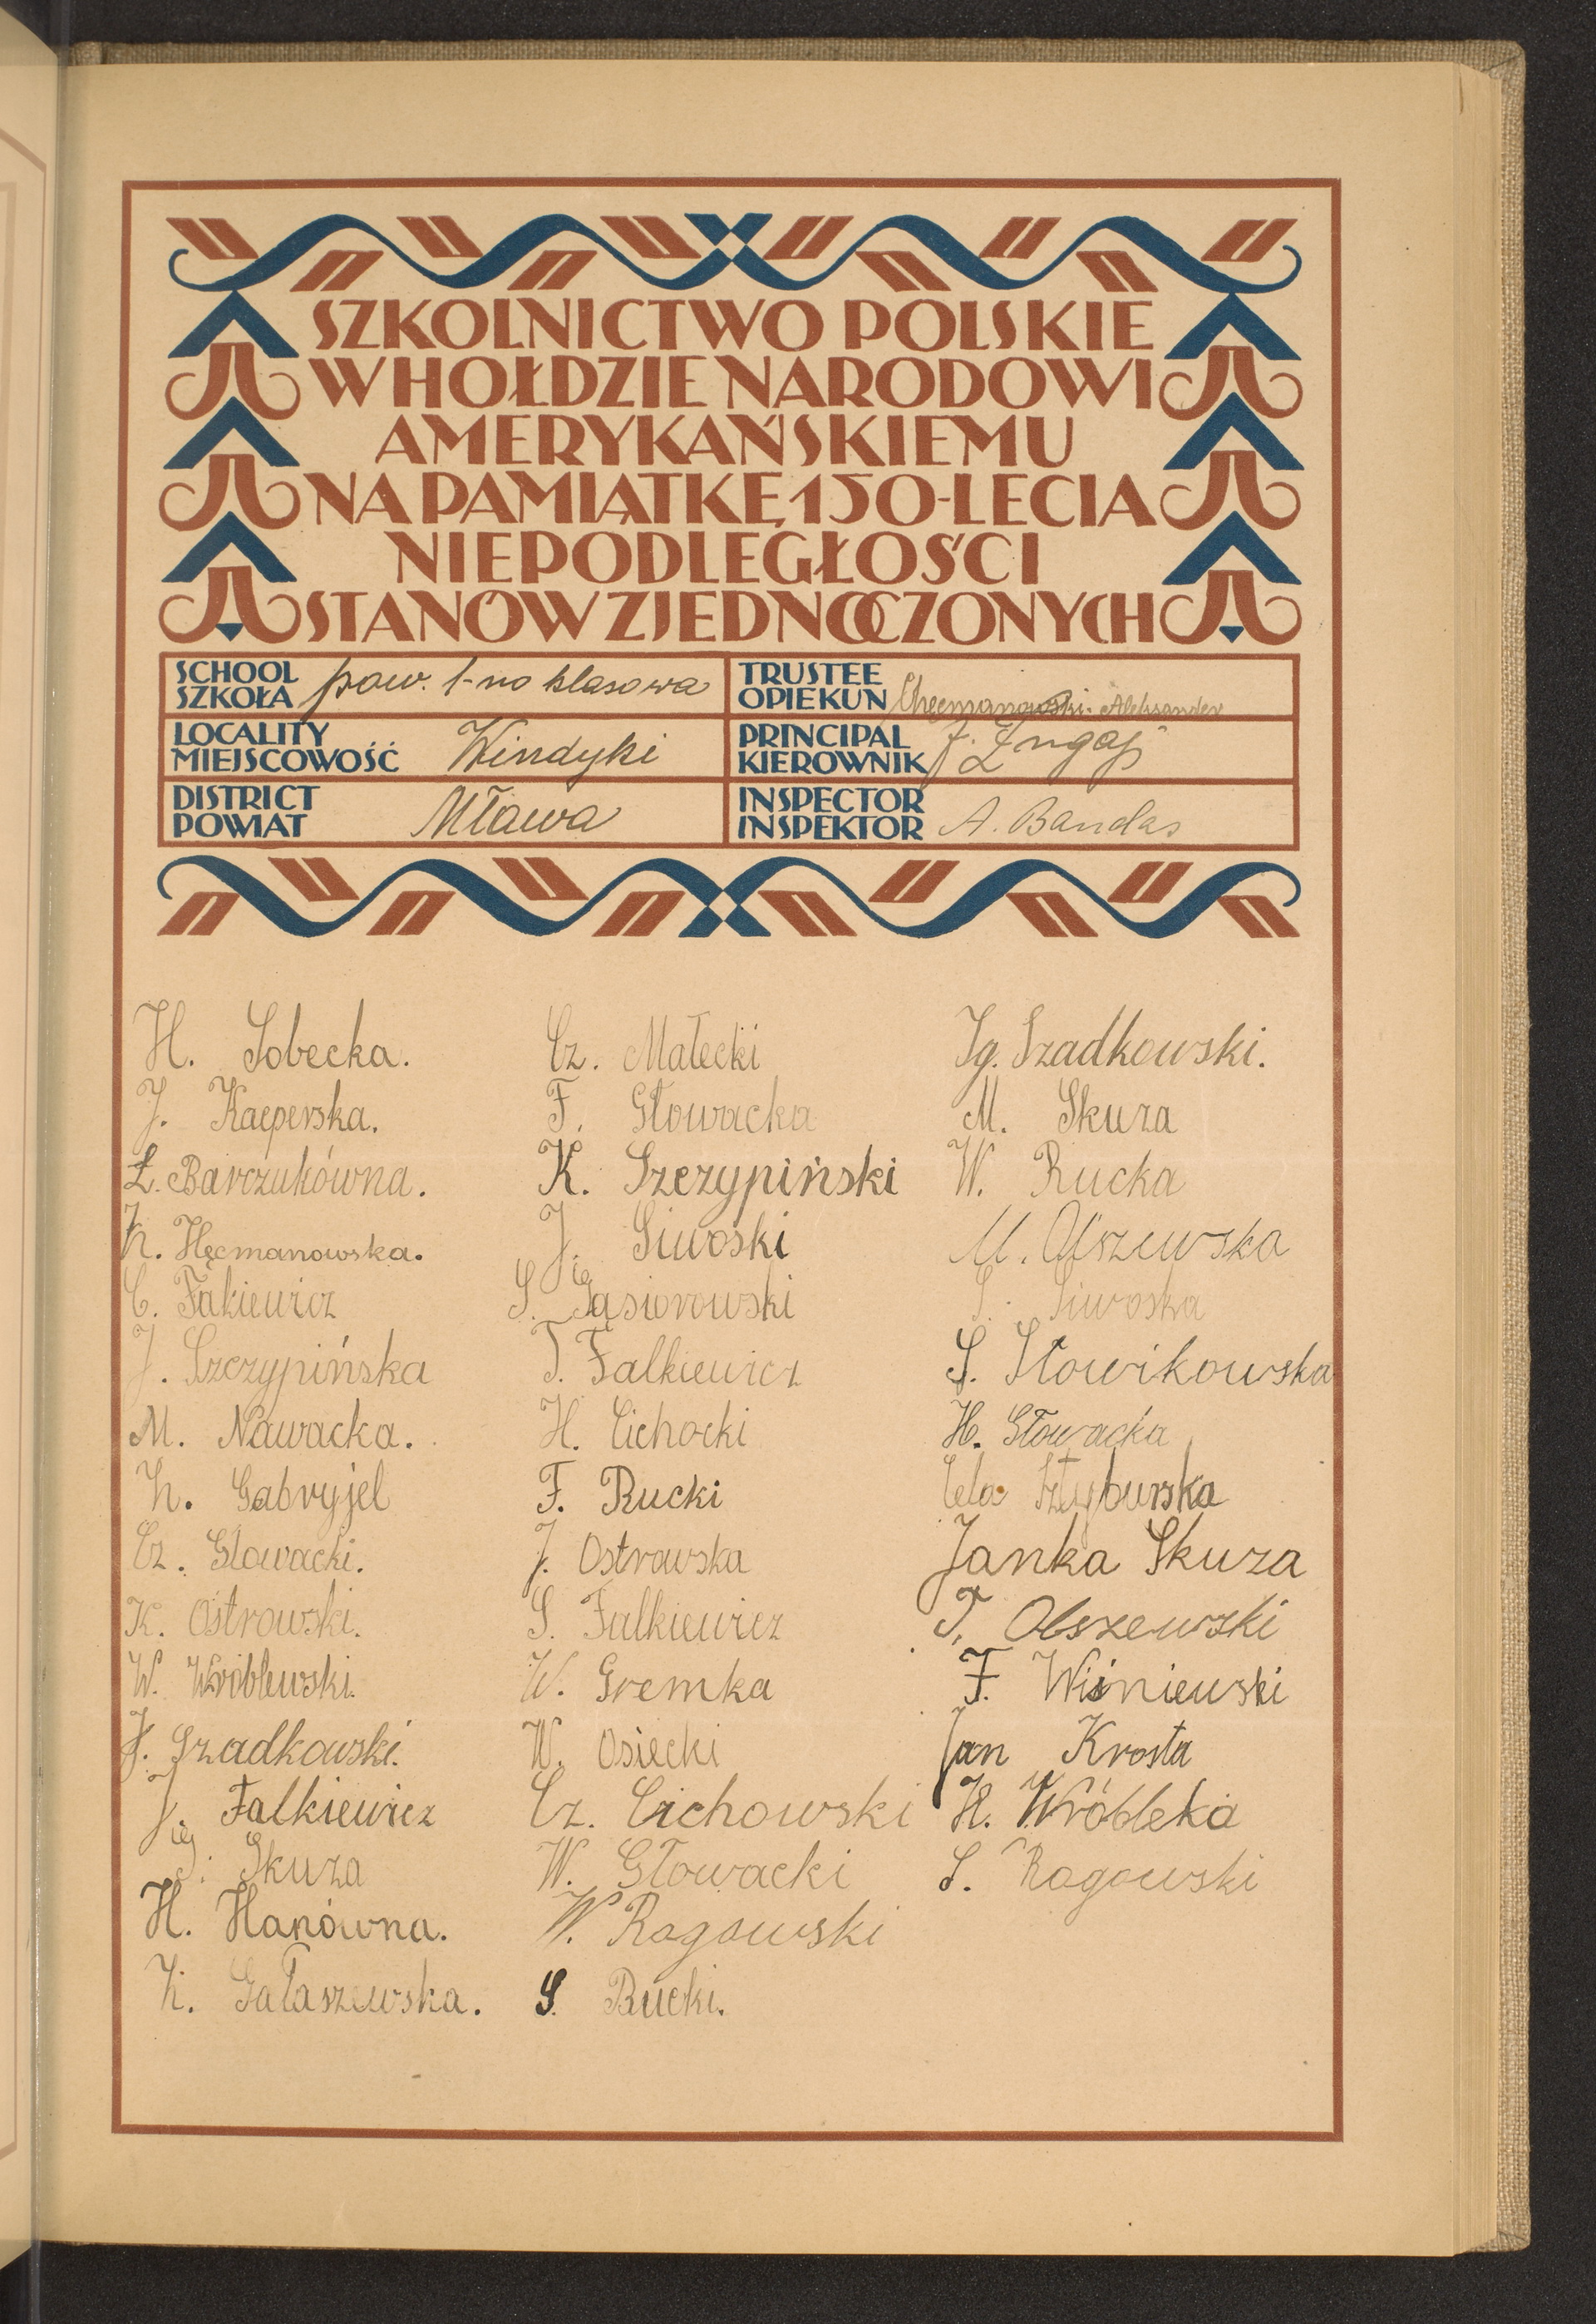 SZKOLNICTWO POLSKIE
W HOŁDZIE NARODOWI
AMERYKAŃSKIEMU
NA PAMIĄTKĘ 150-LECIA
NIEPODLEGŁOŚCI
STANÓW ZJEDNOCZONYCH
SCHOOL
SZKOŁA
pow. 1-no klasowa
TRUSTEE
OPIEKUN
Chęcmanowski Aleksander
LOCALITY
MIEJSCOWOŚĆ
Windyki
PRINCIPAL
KIEROWNIK
J. Żugaj
DISTRICT
POWIAT
Mława
INSPECTOR
INSPEKTOR
A. Bandas
H. Sobecka.
J. Kacperska.
Ł. Barczukówna.
K. Hęcmanowska.
C. Fakiewicz
J. Szczypińska
M. Nawacka.
K. Gabryjel
Cz. Głowacki.
K. Ostrowski.
W. Wróblewski.
J. Szadkowski.
J. Falkiewicz
Ig. Skuza
H. Hanówna.
K. Gałaszewska.
Cz. Małecki
F. Głowacka
K. Szczypiński
J. Siwoski
S. Gąsiorowski
T. Falkiewicz
H. Cichocki
F. Rucki
J. Ostrowska
S. Falkiewicz
W. Gremka
W. Osiecki
Cz. Cichowski
W. Głowacki
W. Rogowski
S. Rucki.
Ig. Szadkowski.
M. Skuza
W. Rucka
M. Olszewska
S. Siwoska
S. Słowikowska
H. Głowacka
Cela
Janka Skuza
T. Olszewski
F. Wiśniewski
Jan Krosta
H. Wróbleka
S. Rogowski